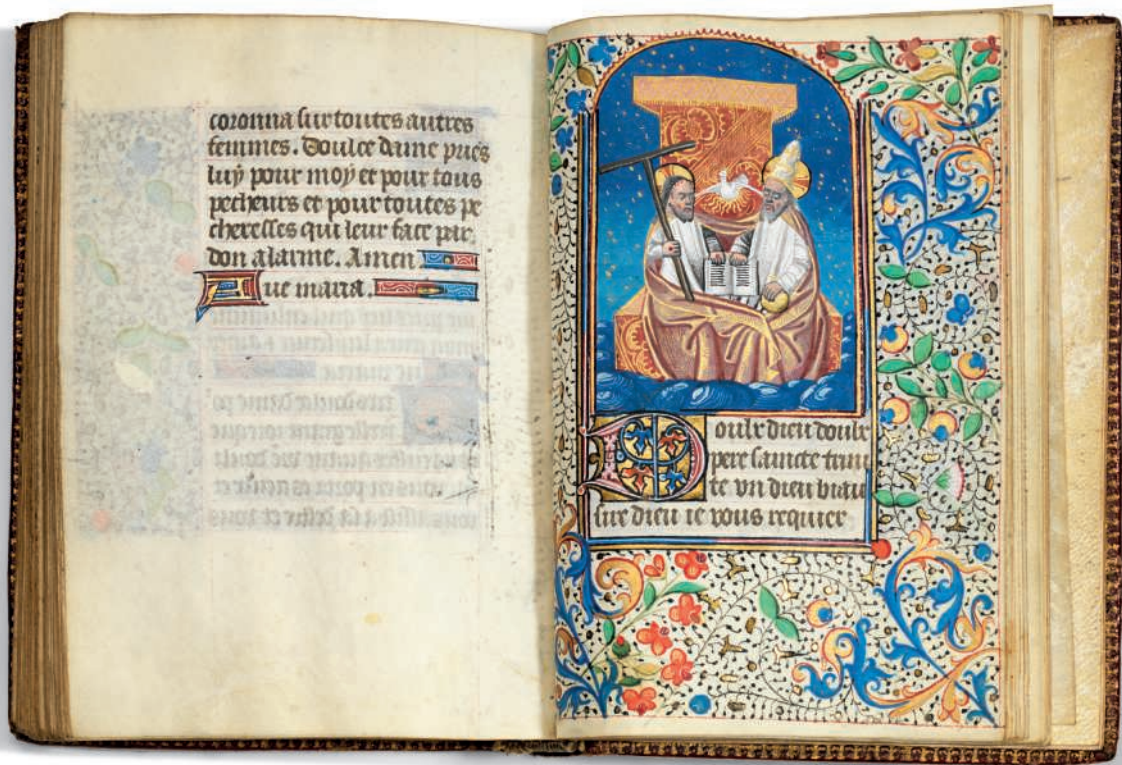 coronna sur toutes autres
femmes. Doulce dame pries
luy pour moy et pour tous
pecheurs et pour toutes pe
cheresses qui leur face par
don a larme. Amen
Aue maria.
Doulx dieu doulx
pere saincte trini
te vn dieu biau
sire dieu ie vous requier